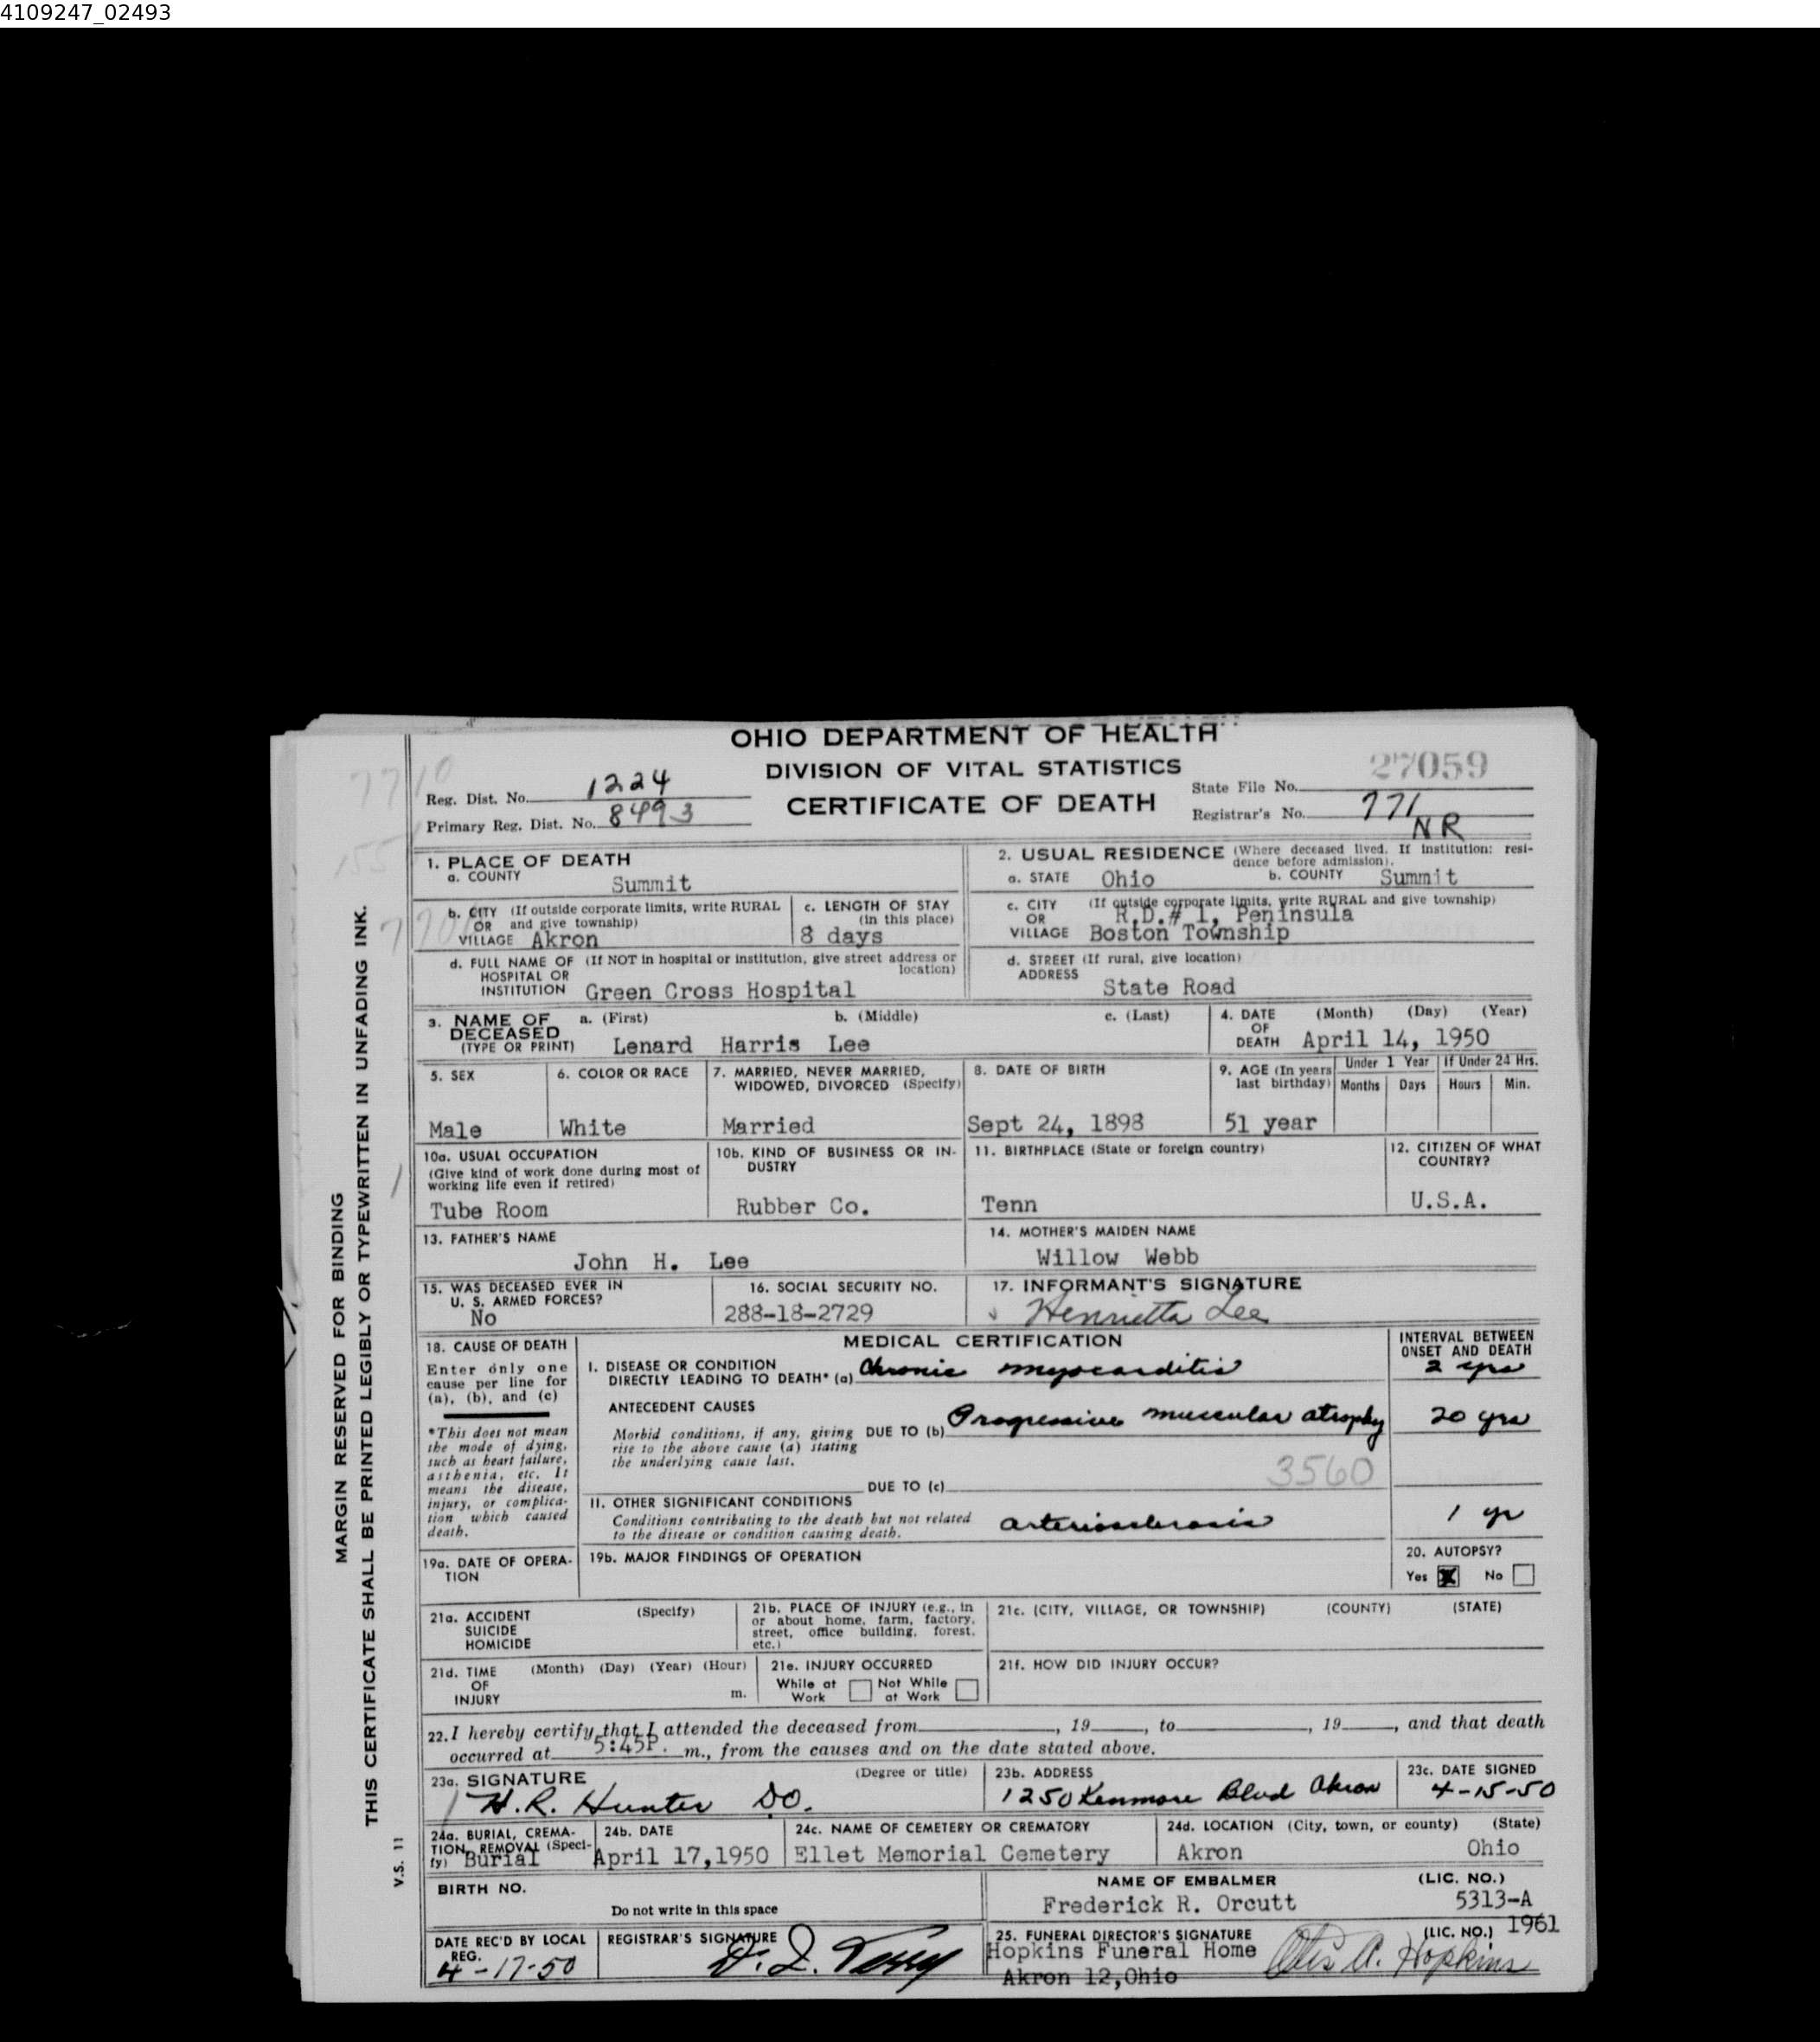 4109247_02493
OHIO DEPARTMENT OF HEALTH
DIVISION OF VITAL STATISTICS
CERTIFICATE OF DEATH
Reg. Dist. No. 1224
Primary Reg. Dist. No. 8493
State File No. 27059
Registrar's No. 771
NR
7710
155
MARGIN RESERVED FOR BINDING
THIS CERTIFICATE SHALL BE PRINTED LEGIBLY OR TYPEWRITTEN IN UNFADING INK.
V.S. 11
1. PLACE OF DEATH
a. COUNTY Summit
b. CITY (If outside corporate limits, write RURAL
OR and give township)
VILLAGE Akron
c. LENGTH OF STAY
(in this place)
8 days
d. FULL NAME OF (If NOT in hospital or institution, give street address or
HOSPITAL OR location)
INSTITUTION Green Cross Hospital
2. USUAL RESIDENCE (Where deceased lived. If institution: resi-
dence before admission).
a. STATE Ohio b. COUNTY Summit
c. CITY (If outside corporate limits, write RURAL and give township)
OR R.D.# 1, Peninsula
VILLAGE Boston Township
d. STREET (If rural, give location)
ADDRESS State Road
3. NAME OF a. (First) b. (Middle) c. (Last)
DECEASED
(TYPE OR PRINT) Lenard Harris Lee
4. DATE (Month) (Day) (Year)
OF
DEATH April 14, 1950
5. SEX
Male
6. COLOR OR RACE
White
7. MARRIED, NEVER MARRIED,
WIDOWED, DIVORCED (Specify)
Married
8. DATE OF BIRTH
Sept 24, 1898
9. AGE (In years
last birthday)
51 year
Under 1 Year
Months Days
If Under 24 Hrs.
Hours Min.
10a. USUAL OCCUPATION
(Give kind of work done during most of
working life even if retired)
Tube Room
10b. KIND OF BUSINESS OR IN-
DUSTRY
Rubber Co.
11. BIRTHPLACE (State or foreign country)
Tenn
12. CITIZEN OF WHAT
COUNTRY?
U.S.A.
13. FATHER'S NAME
John H. Lee
14. MOTHER'S MAIDEN NAME
Willow Webb
15. WAS DECEASED EVER IN
U. S. ARMED FORCES?
No
16. SOCIAL SECURITY NO.
288-18-2729
17. INFORMANT'S SIGNATURE
Henrietta Lee
18. CAUSE OF DEATH
Enter only one
cause per line for
(a), (b), and (c)
*This does not mean
the mode of dying,
such as heart failure,
asthenia, etc. It
means the disease,
injury, or complica-
tion which caused
death.
MEDICAL CERTIFICATION
I. DISEASE OR CONDITION
DIRECTLY LEADING TO DEATH* (a) Chronic myocarditis
ANTECEDENT CAUSES
Morbid conditions, if any, giving DUE TO (b) Progressive muscular atrophy
rise to the above cause (a) stating
the underlying cause last.
3560
DUE TO (c)
II. OTHER SIGNIFICANT CONDITIONS
Conditions contributing to the death but not related
to the disease or condition causing death.
arteriosclerosis
INTERVAL BETWEEN
ONSET AND DEATH
2 yrs
20 yrs
1 yr
19a. DATE OF OPERA-
TION
19b. MAJOR FINDINGS OF OPERATION
20. AUTOPSY?
Yes X No
21a. ACCIDENT (Specify)
SUICIDE
HOMICIDE
21b. PLACE OF INJURY (e.g., in
or about home, farm, factory,
street, office building, forest,
etc.)
21c. (CITY, VILLAGE, OR TOWNSHIP) (COUNTY) (STATE)
21d. TIME (Month) (Day) (Year) (Hour)
OF
INJURY m.
21e. INJURY OCCURRED
While at Not While
Work at Work
21f. HOW DID INJURY OCCUR?
22. I hereby certify that I attended the deceased from , 19 , to , 19 , and that death
occurred at 5:45P. m., from the causes and on the date stated above.
23a. SIGNATURE (Degree or title)
H.R. Hunter DO.
23b. ADDRESS
1250 Kenmore Blvd Akron
23c. DATE SIGNED
4-15-50
24a. BURIAL, CREMA-
TION, REMOVAL (Speci-
fy) Burial
24b. DATE
April 17,1950
24c. NAME OF CEMETERY OR CREMATORY
Ellet Memorial Cemetery
24d. LOCATION (City, town, or county) (State)
Akron Ohio
BIRTH NO.
Do not write in this space
NAME OF EMBALMER (LIC. NO.)
Frederick R. Orcutt 5313-A
DATE REC'D BY LOCAL
REG.
4-17-50
REGISTRAR'S SIGNATURE
25. FUNERAL DIRECTOR'S SIGNATURE (LIC. NO.) 1961
Hopkins Funeral Home Otis A. Hopkins
Akron 12,Ohio